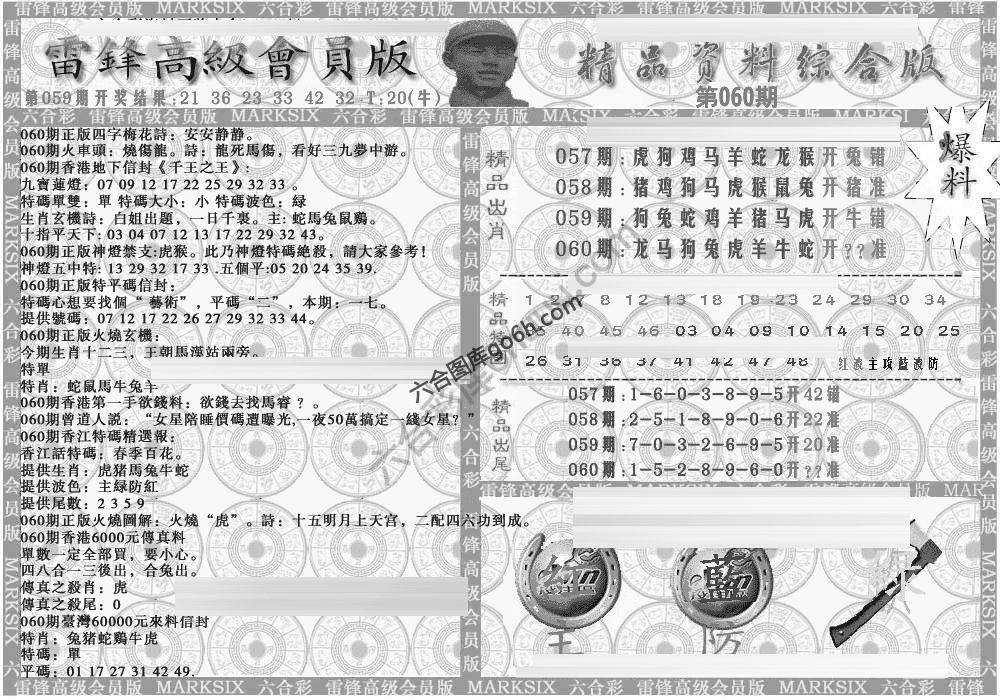 雷锋高级会员版 MARKSIX 六合彩 雷锋高级会员版 MARKSIX 六合彩 雷锋高级会员版 MARKSIX 六合彩
雷鋒高級會員版
第059期开奖结果:21 36 23 33 42 32-T:20(牛)
精品资料综合版
第060期
爆料
060期正版四字梅花詩：安安静静。
060期火車頭：燒傷龍。詩：龍死馬傷，看好三九夢中游。
060期香港地下信封《千王之王》:
九寶蓮燈：07 09 12 17 22 25 29 32 33 。
特碼單雙：單 特碼大小：小 特碼波色：緑
生肖玄機詩：白姐出題，一日千裏。主: 蛇馬兔鼠鷄。
十指平天下:03 04 07 12 13 17 22 29 32 43。
060期正版神燈禁支:虎猴。此乃神燈特碼絶殺，請大家參考！
神燈五中特: 13 29 32 17 33 .五個平:05 20 24 35 39.
060期正版特平碼信封:
特碼心想要找個“ 藝術”，平碼“二”，本期：一七。
提供號碼：07 12 17 22 26 27 29 32 33 44。
060期正版火燒玄機：
今期生肖十二三，王朝馬漢站兩旁。
特單
特肖：蛇鼠馬牛兔羊
060期香港第一手欲錢料：欲錢去找馬睿？。
060期曾道人説：“女星陪睡價碼遭曝光,一夜50萬搞定一綫女星？”
060期香江特碼精選報：
香江話特碼：春季百花。
提供生肖：虎猪馬兔牛蛇
提供波色：主緑防紅
提供尾數：2 3 5 9
060期正版火燒圖解：火燒“虎”。詩：十五明月上天宫，二配四六功到成。
060期香港6000元傳真料
單數一定全部買，要小心。
四八合一三後出，合兔出。
傳真之殺肖：虎
傳真之殺尾：0
060期臺灣60000元來料信封
特肖：兔猪蛇鷄牛虎
特碼：單
平碼：01 17 27 31 42 49.
精品出肖
057期:虎狗鸡马羊蛇龙猴开兔错
058期:猪鸡狗马虎猴鼠兔开猪准
059期:狗兔蛇鸡羊猪马虎开牛错
060期:龙马狗兔虎羊牛蛇开??准
1 2 7 8 12 13 18 19 23 24 29 30 34
40 45 46 03 04 09 10 14 15 20 25
26 31 36 37 41 42 47 48 红波主攻蓝波防
精品出尾
057期:1-6-0-3-8-9-5开42错
058期:2-5-1-8-9-0-6开22准
059期:7-0-3-2-6-9-5开20准
060期:1-5-2-8-9-6-0开??准
六合图库906h.com
雷锋高级会员版 MARKSIX 六合彩 雷锋高级会员版 MARKSIX 六合彩 雷锋高级会员版 MARKSIX 六合彩